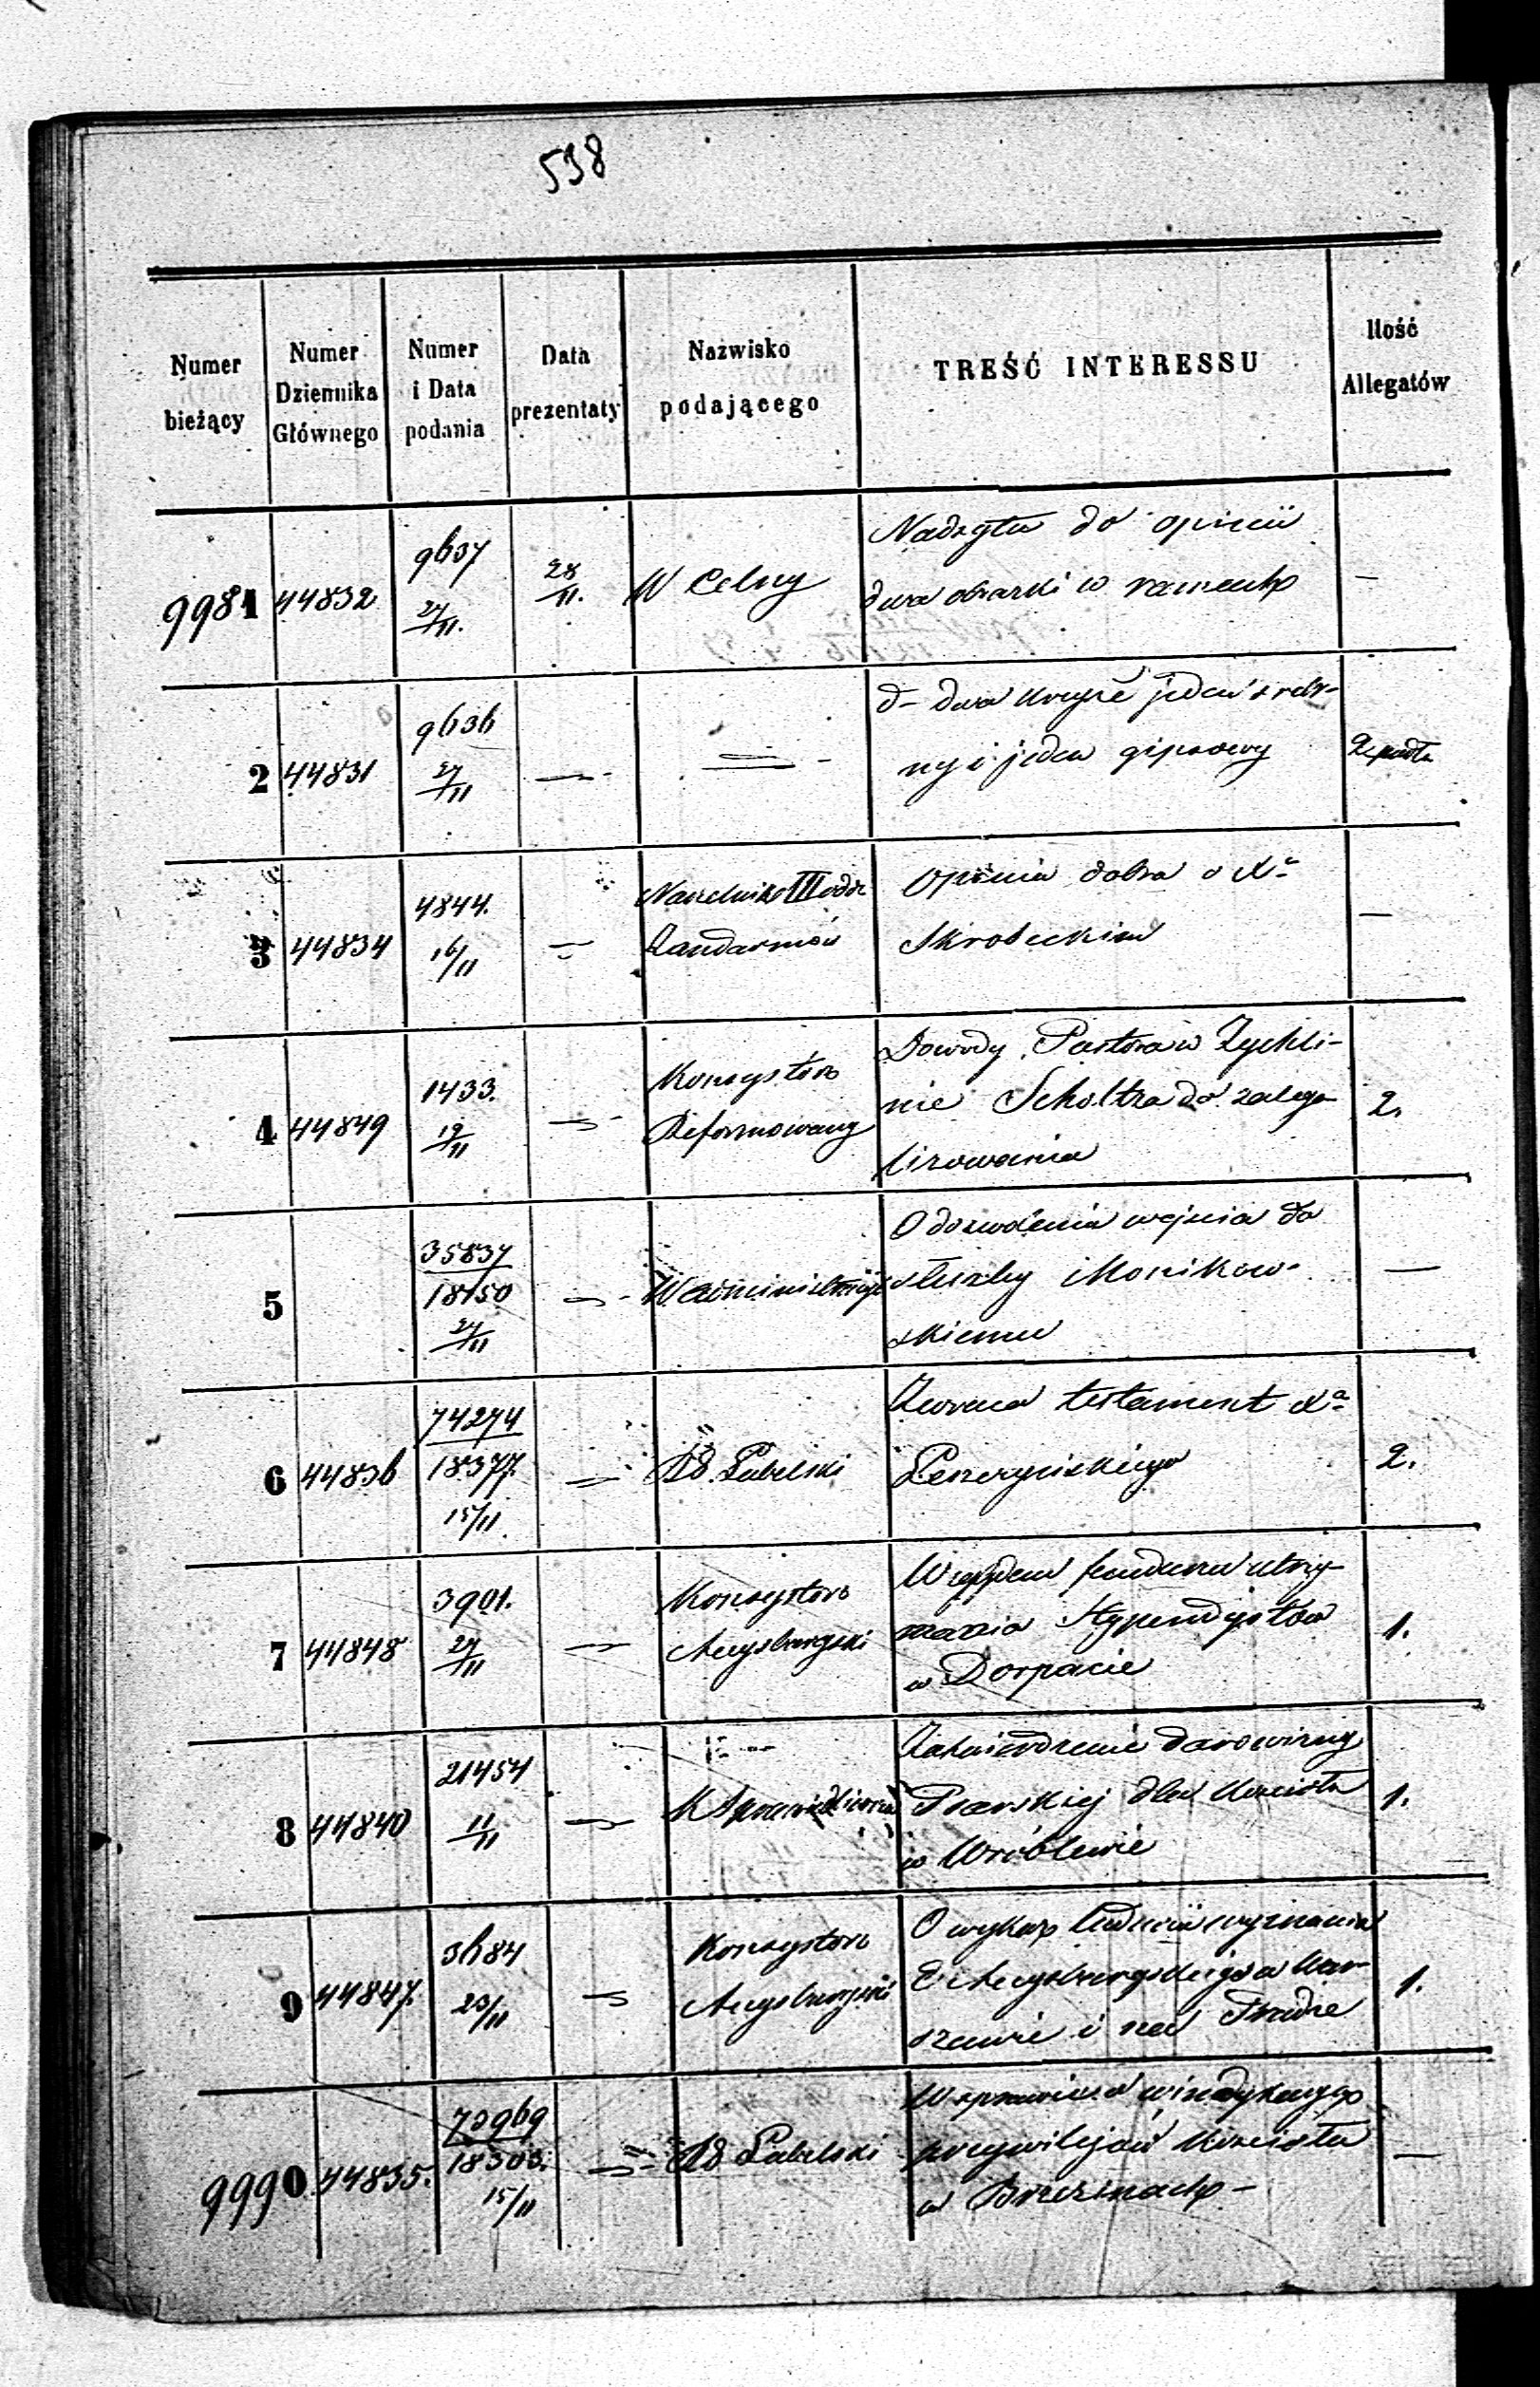 538
Numer bieżący | Numer Dziennika Głównego | Numer i Data podania | Data prezentaty | Nazwisko podającego | TREŚĆ INTERESSU | Ilość Allegatów
9981 | 44832 | 9637 27/11. | 28/11. | W Celny | Nadsyła do opinii
dwa obrazki w ramach | —
2 | 44831 | 9636 27/11 | — | — | d- dwa krzyże jeden srebr-
ny i jeden gipsowy | 2 pudła
3 | 44834 | 4844. 16/11 | — | Naczelnik III odz
Żandarmów | Opinia dobra o Xu
Skrobeckim | —
4 | 44849 | 1433. 19/11 | — | Konsystorz
Reformowany | Dowody Pastora w Żychli-
nie Scholtza do zalega-
lizowania | 2.
5 | 35837/18150 27/11 | — | W Administracyi | O dozwolenia wejścia do
służby Monikow-
skiemu | —
6 | 44836 | 74274/18377. 15/11 | — | RG. Lubelski | Zwraca testament Xa
Leszczyńskiego | 2.
7 | 44848 | 3901. 27/11 | — | Konsystorz
Augsburgski | Względem funduszu utrzy-
mania Stypendystów
w Dorpacie | 1.
8 | 44840 | 21454 11/11 | — | K Sprawiedliwości | Zatwierdzenie darowizny
Psarskiej dla kościoła
w Wróblewie | 1.
9 | 44847. | 3684 23/11 | — | Konsystorz
Augsburgski | O wykaz ludności wyznania
E Augsburgskiego w War-
szawie i na Pradze | 1.
9990 | 44835. | 73969/18303. 15/11 | — | RG Lubelski | W sprawie o windykacyą
przywilejów kościoła
w Brzezinach - | —